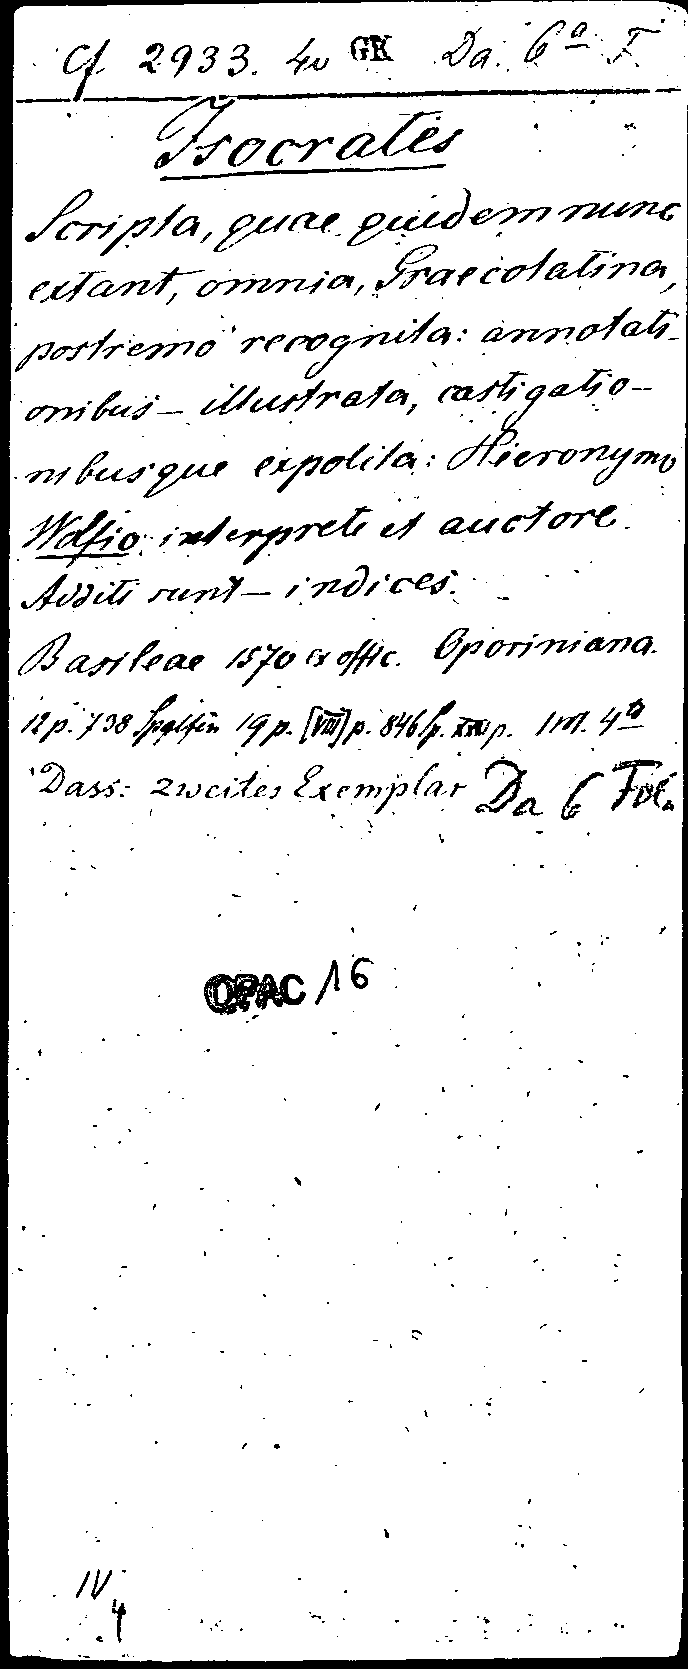 Cf 2933. 4o GK Da. 6a F
Isocrates
Scripta, quae quidem nunc
extant, omnia, Graecolatina,
postremo recognita: annotati-
onibus – illustrata, castigatio-
nibusque expolita: Hieronymo
Wolfio interprete et auctore.
Additi sunt – indices.
Basileae 1570 ex offic. Oporiniana.
12 p. 738 Spalten 19 p. [VIII] p. 846 Sp. XXI p. 1 vol. 4o
Dass: zweites Exemplar Da 6 Fol.
OPAC 16
IV
4